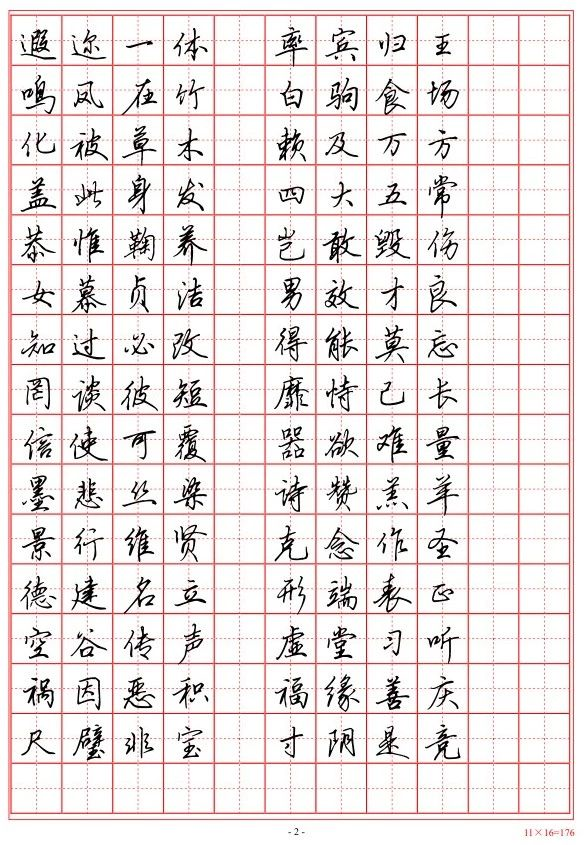 遐迩一体 率宾归王
鸣凤在竹 白驹食场
化被草木 赖及万方
盖此身发 四大五常
恭惟鞠养 岂敢毁伤
女慕贞洁 男效才良
知过必改 得能莫忘
罔谈彼短 靡恃己长
信使可覆 器欲难量
墨悲丝染 诗赞羔羊
景行维贤 克念作圣
德建名立 形端表正
空谷传声 虚堂习听
祸因恶积 福缘善庆
尺璧非宝 寸阴是竞
- 2 -
11×16=176